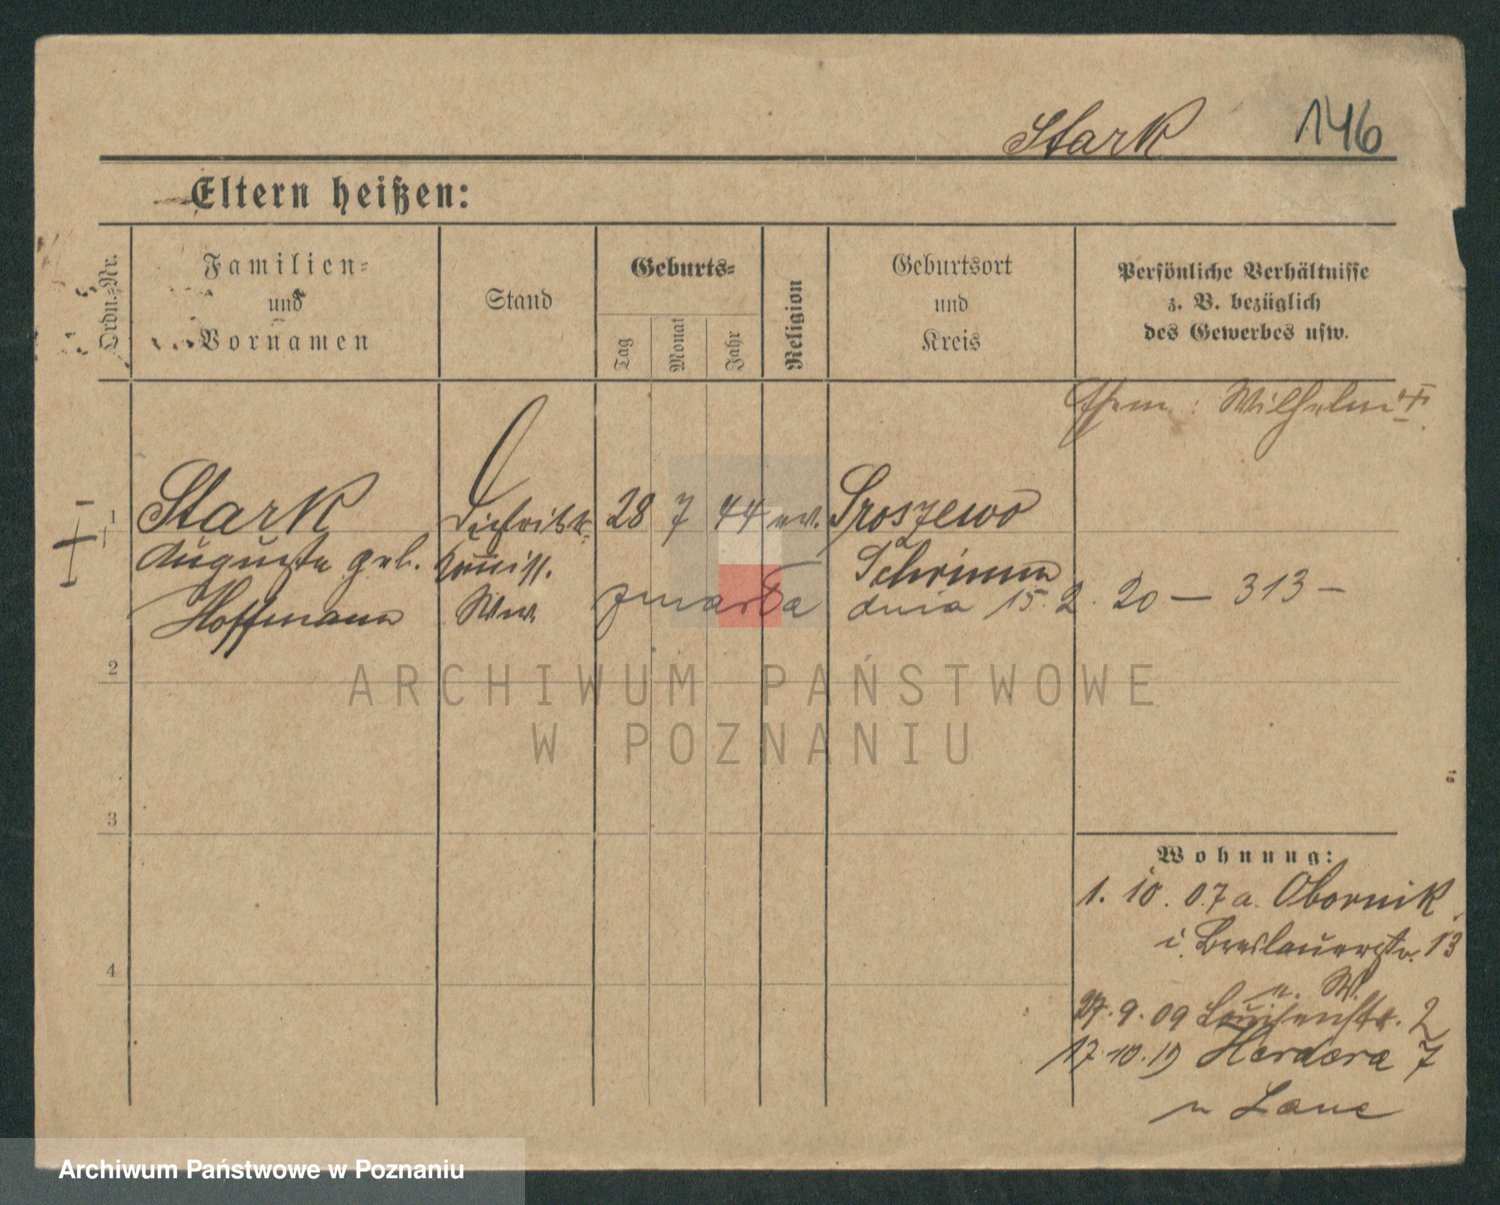 Stark 146
Eltern heißen:
Ordn.-Nr.
Familien-
und
Vornamen
Stand
Geburts-
Tag
Monat
Jahr
Religion
Geburtsort
und
Kreis
Persönliche Verhältnisse
z. B. bezüglich
des Gewerbes usw.
Ehem: Wilhelm ✝
1 Stark Distrikts- 28 7 44 ev. Sroszewo
Auguste geb. Kommiss. Schrimm
Hoffmann Ww. zmarła dnia 15.2.20 — 313 —
2
3
4
Wohnung:
1. 10. 07 a. Obornik
i. Breslauerstr. 13
n. W.
27. 9. 09 Louisenstr. 2
17.10.19 Herdera 7
ARCHIWUM PAŃSTWOWE
W POZNANIU
Archiwum Państwowe w Poznaniu